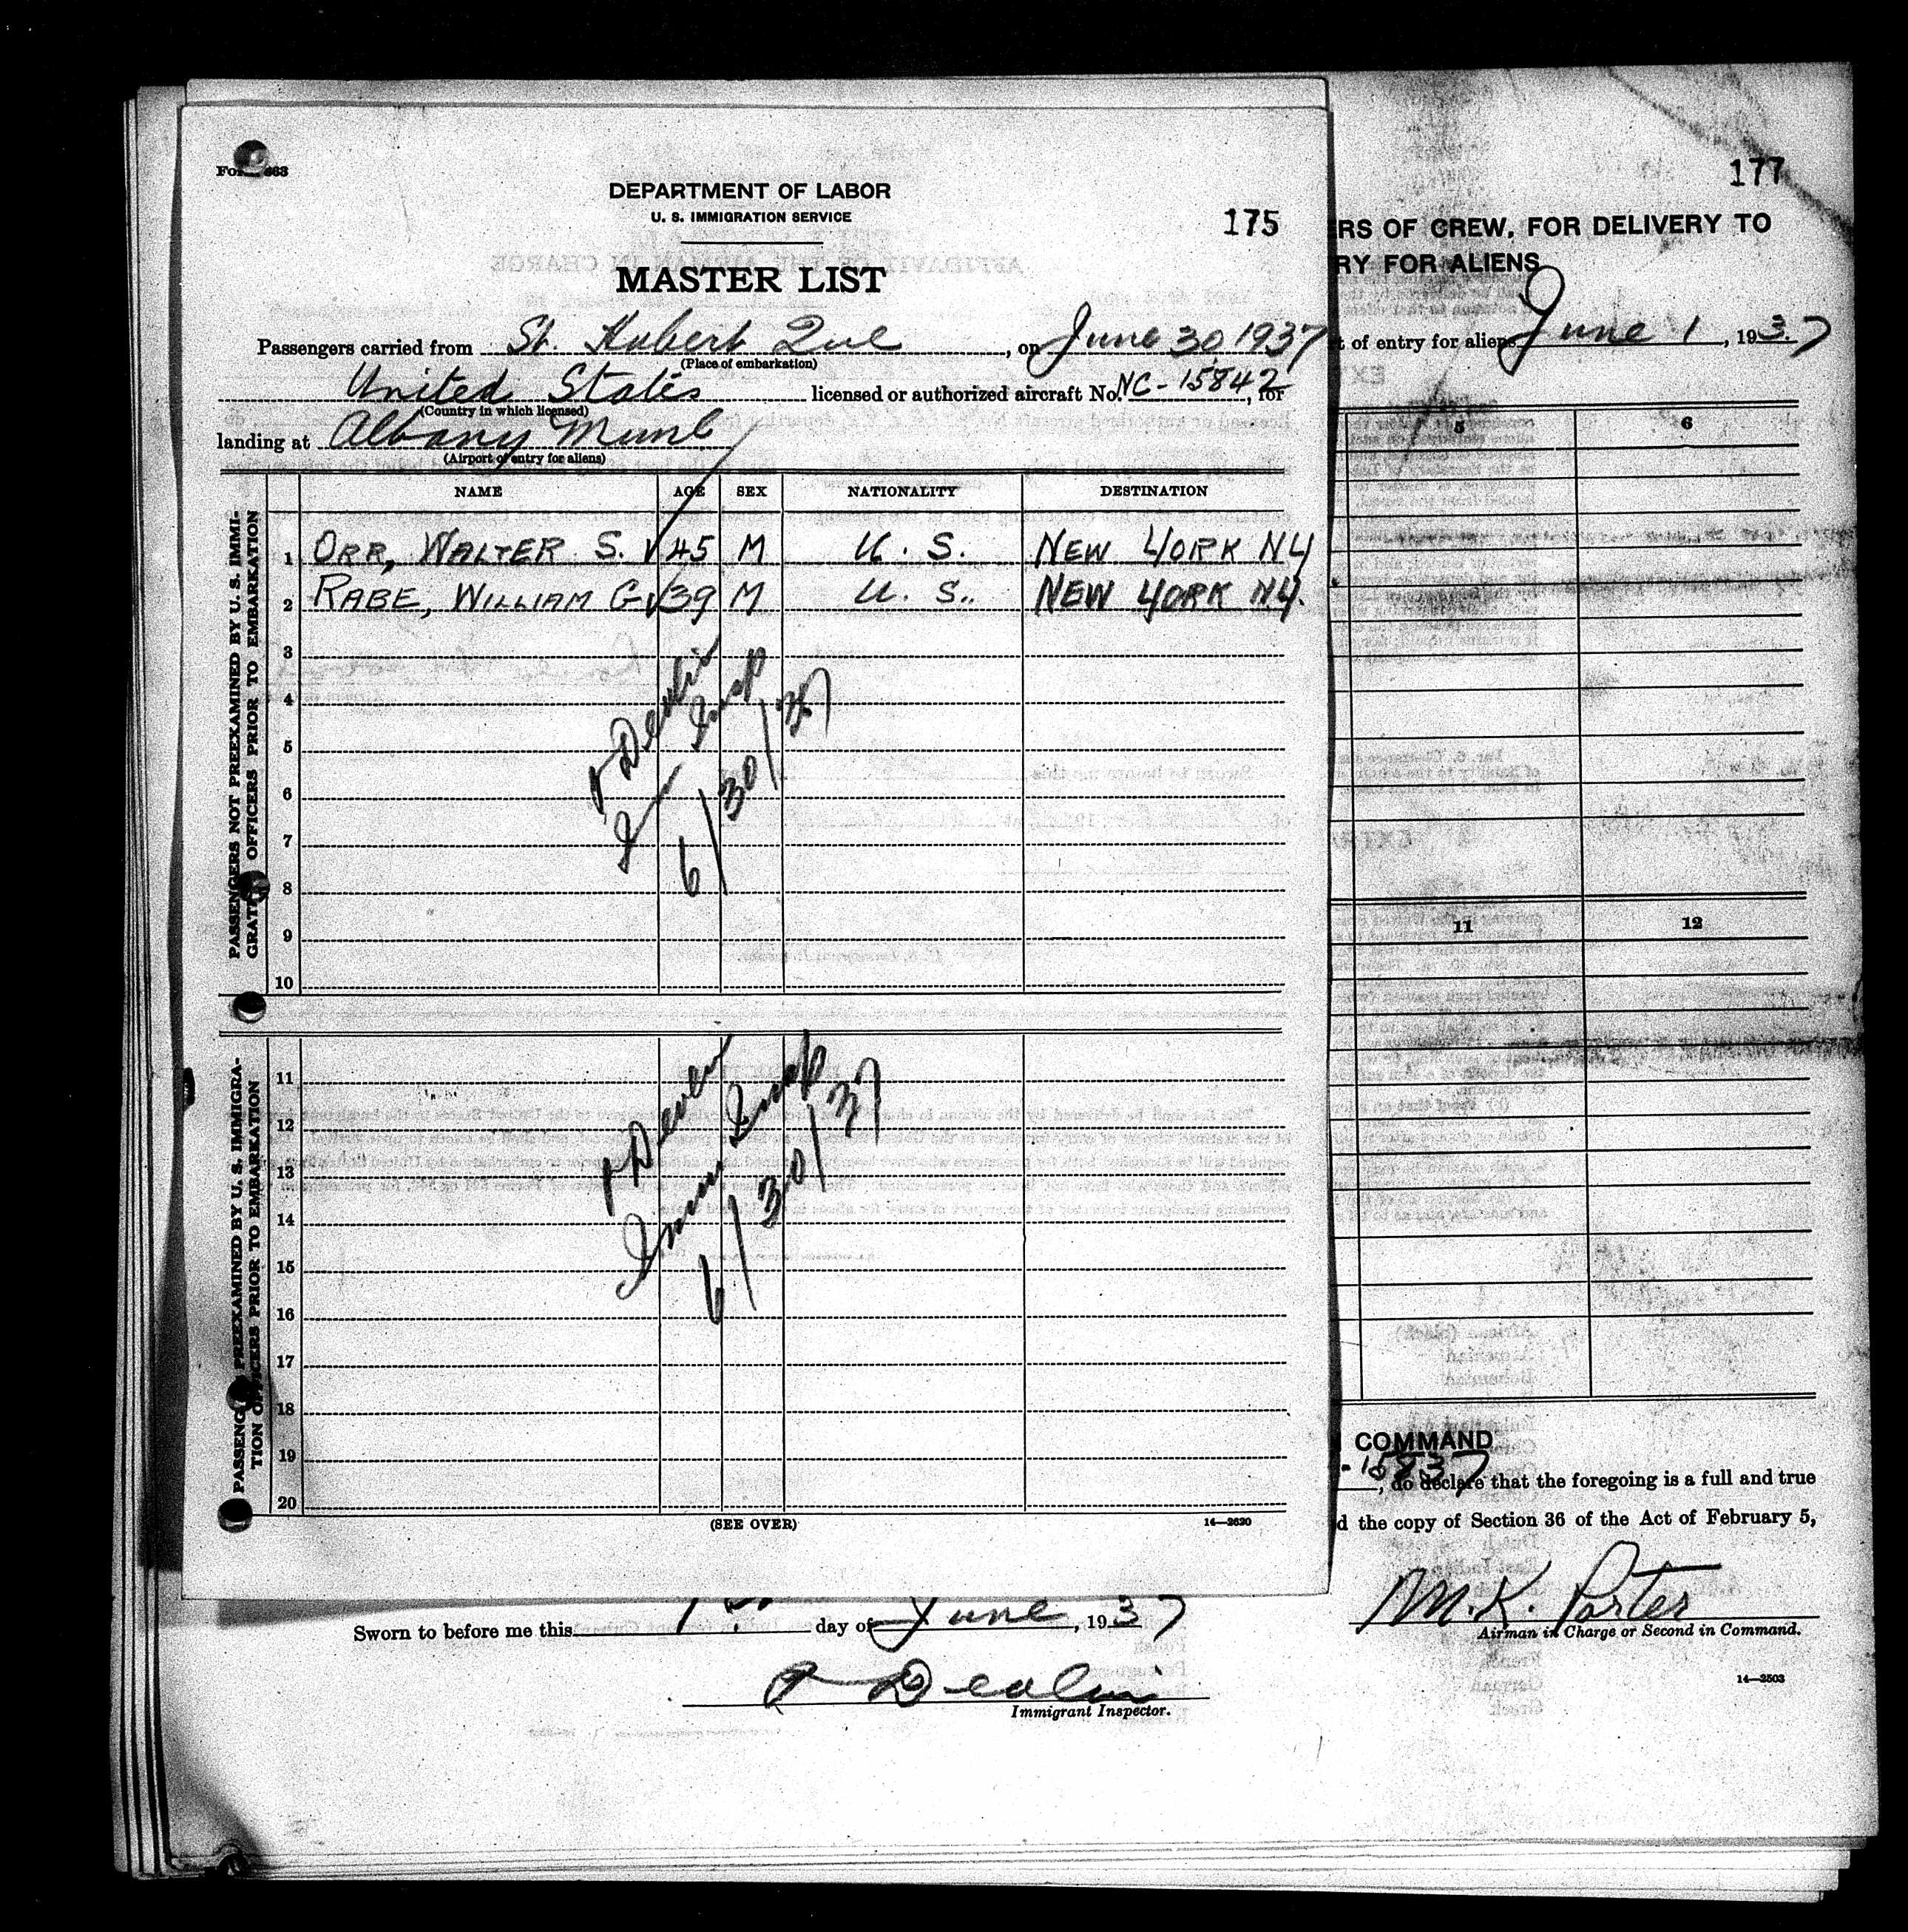 DEPARTMENT OF LABOR
U. S. IMMIGRATION SERVICE
175
MASTER LIST
Passengers carried from St. Hubert Que, on June 30, 1937
(Place of embarkation)
United States licensed or authorized aircraft No. NC-15842, for
(Country in which licensed)
landing at Albany Munl
(Airport of entry for aliens)
NAME AGE SEX NATIONALITY DESTINATION
PASSENGERS NOT PREEXAMINED BY U. S. IMMI-
OFFICERS PRIOR TO EMBARKATION
1 ORR, WALTER S. 45 M U. S. NEW YORK NY
2 RABE, WILLIAM G 39 M U. S. NEW YORK NY.
3
4
5
6
7
8
9
10
Devlin
Imm Insp
6/30/37
PREEXAMINED BY U. S. IMMIGRA-
TION OFFICERS PRIOR TO EMBARKATION
11
12
13
14
15
16
17
18
19
20
Devlin
Imm Insp
6/30/37
(SEE OVER)
14—2620
177
RS OF CREW, FOR DELIVERY TO
RY FOR ALIENS
of entry for aliens June 1, 1937
5 6
11 12
COMMAND
-15837, do declare that the foregoing is a full and true
d the copy of Section 36 of the Act of February 5,
M. K. Porter
Airman in Charge or Second in Command.
14—2503
Sworn to before me this day of June, 1937
Devlin
Immigrant Inspector.